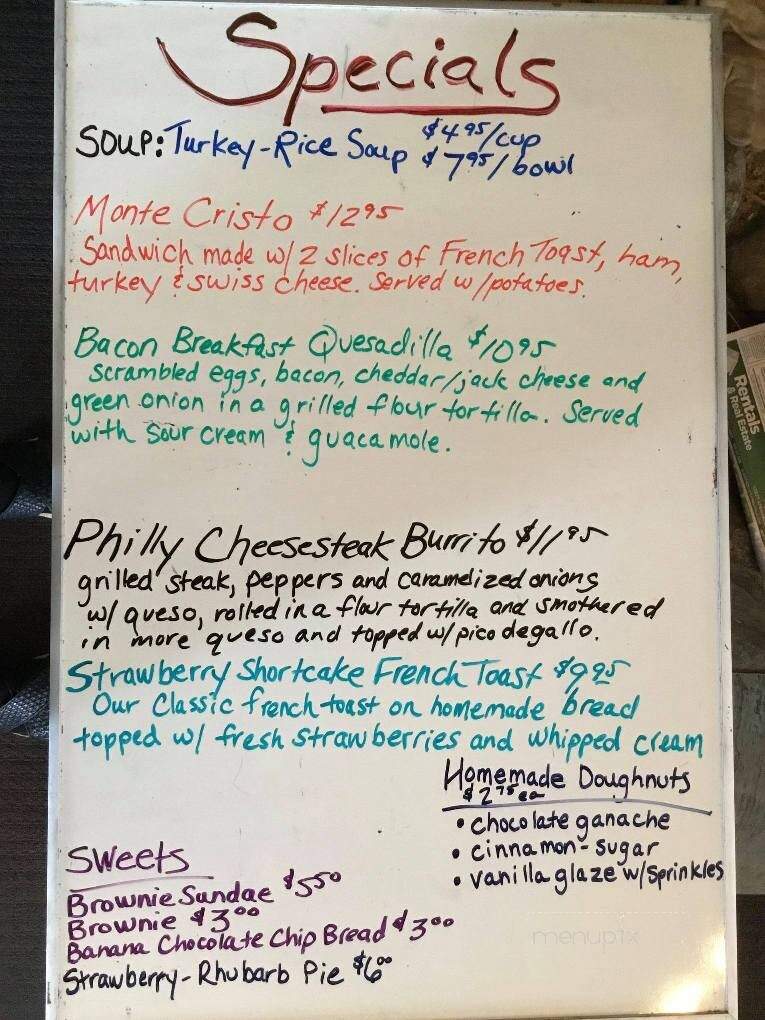 Specials
SOUP: Turkey-Rice Soup $4.95/cup
$7.95/bowl
Monte Cristo $12.95
Sandwich made w/ 2 slices of French Toast, ham,
turkey & swiss cheese. Served w/potatoes.
Bacon Breakfast Quesadilla $10.95
scrambled eggs, bacon, cheddar/jack cheese and
green onion in a grilled flour tortilla. Served
with sour cream & guacamole.
Philly Cheesesteak Burrito $11.95
grilled steak, peppers and caramelized onions
w/ queso, rolled in a flour tortilla and smothered
in more queso and topped w/pico degallo.
Strawberry Shortcake French Toast $9.95
Our Classic french toast on homemade bread
topped w/ fresh strawberries and whipped cream
Homemade Doughnuts
$2.75 ea
• chocolate ganache
• cinnamon-sugar
• vanilla glaze w/Sprinkles
Sweets
Brownie Sundae $5.50
Brownie $3.00
Banana Chocolate Chip Bread $3.00
Strawberry-Rhubarb Pie $6.00
Rentals
& Real Estate
menupix